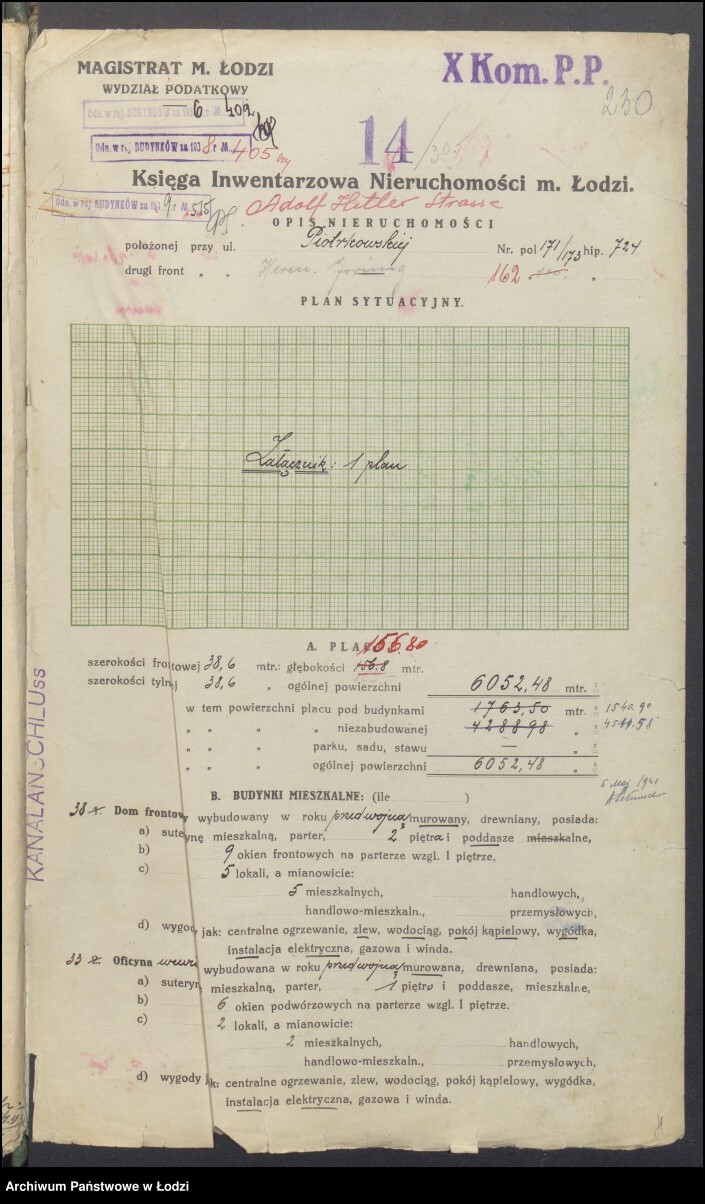 MAGISTRAT M. ŁODZI
WYDZIAŁ PODATKOWY
X Kom. P.P.
230
Odn. w rej. BUDYNKÓW za 193 6 r № 402
Odn. w rej. BUDYNKÓW za 193 8 r № 405
14
Księga Inwentarzowa Nieruchomości m. Łodzi.
Odn. w rej. BUDYNKÓW za 193 9 r № 515
Adolf Hitler Strasse
OPIS NIERUCHOMOŚCI
położonej przy ul. Piotrkowskiej Nr. pol 171/173 hip. 724
drugi front „ „ Herm. Göring 162 „
PLAN SYTUACYJNY.
Załącznik: 1 plan
A. PLAC
156.80
szerokości frontowej 38,6 mtr.: głębokości 156.8 mtr.
szerokości tylnej 38,6 „ ogólnej powierzchni 6052,48 mtr. ²
w tem powierzchni placu pod budynkami 1763,50 mtr. ² 1540.90
„ „ „ niezabudowanej 4288,98 „ ² 4511.58
„ „ „ parku, sadu, stawu — „ ²
„ „ „ ogólnej powierzchni 6052,48 „ ²
5 Maj 1941
KANALANSCHLUSS
B. BUDYNKI MIESZKALNE: (ile )
38 1. Dom frontowy wybudowany w roku przedwojną murowany, drewniany, posiada:
a) suterynę mieszkalną, parter, 2 piętra i poddasze mieszkalne,
b) 9 okien frontowych na parterze wzgl. I piętrze,
c) 5 lokali, a mianowicie:
5 mieszkalnych, handlowych,
handlowo-mieszkaln., przemysłowych,
d) wygody jak: centralne ogrzewanie, zlew, wodociąg, pokój kąpielowy, wygódka,
instalacja elektryczna, gazowa i winda.
33 2. Oficyna wybudowana w roku przedwojną murowana, drewniana, posiada:
a) suteryn mieszkalną, parter, 1 piętro i poddasze, mieszkalne,
b) 6 okien podwórzowych na parterze wzgl. I piętrze.
c) 2 lokali, a mianowicie:
2 mieszkalnych, handlowych,
handlowo-mieszkaln., przemysłowych,
d) wygody jak: centralne ogrzewanie, zlew, wodociąg, pokój kąpielowy, wygódka,
instalacja elektryczna, gazowa i winda.
Archiwum Państwowe w Łodzi